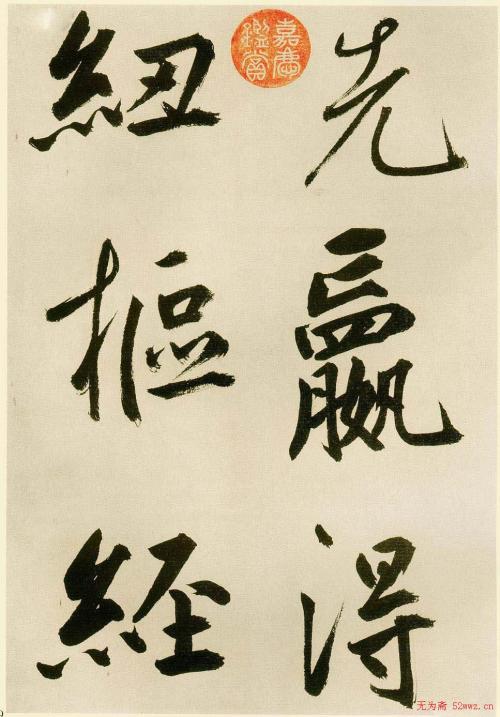 先嬴得
紐樞經
嘉慶
鑑賞
无为斋 52wwz.cn